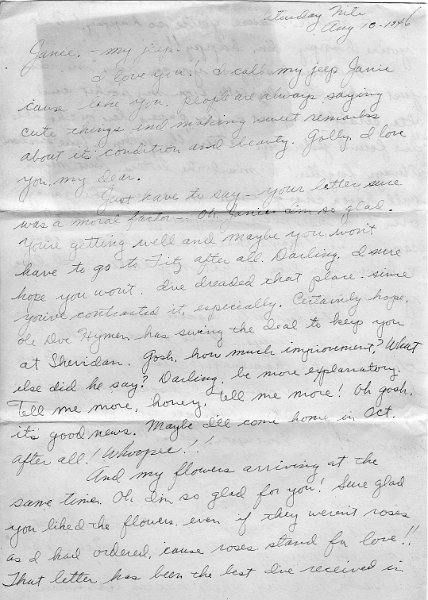 Saturday Nite
Aug 10 - 1946
Janie. - my jeep.
I love you! I call my jeep Janie
'cause like you, people are always saying
cute things and making sweet remarks
about its condition and beauty. Golly, I love
you, my dear.
Just have to say - your letter sure
was a moral factor - Oh Janie I'm so glad.
You're getting well and maybe you won't
have to go to Fitz after all. Darling, I sure
hope you won't. I've dreaded that place since
you've contracted it, especially. Certainly hope
ole Doc Hymen has swing the deal to keep you
at Sheridan. Gosh, how much improvment? What
else did he say? Darling, be more explanatory.
Tell me more, honey, tell me more! Oh gosh,
it's good news. Maybe I'll come home in Oct.
after all! Whoopee!!!
And my flowers arriving at the
same time. Oh I'm so glad for you! Sure glad
you liked the flowers, even if they weren't roses
as I had ordered, 'cause roses stand for love!!
That letter has been the best I've received in